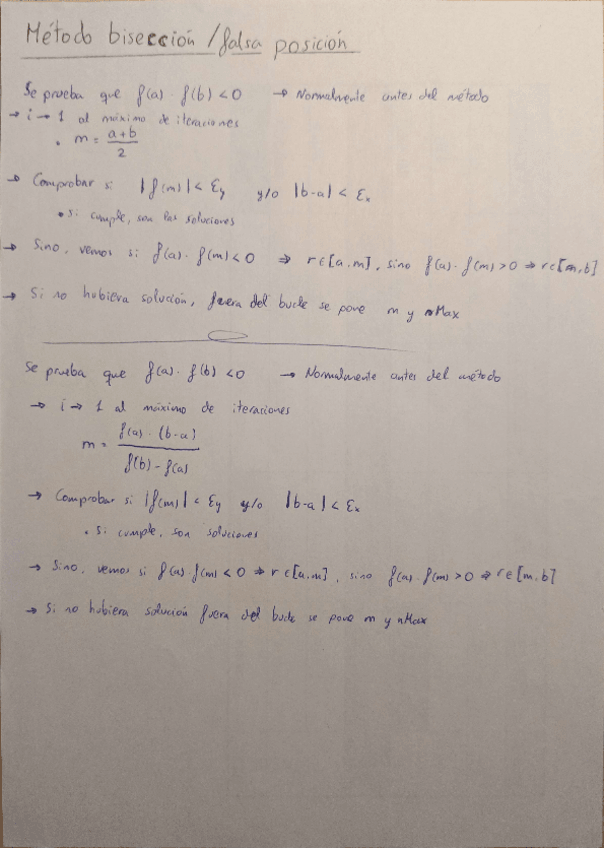 Método bisección / falsa posición
Se prueba que f(a) · f(b) < 0 → Normalmente antes del método
→ i → 1 al máximo de iteraciones
• m = a+b / 2
→ Comprobar si |f(m)| < Ey y/o |b-a| < Ex
• Si cumple, son las soluciones
→ Sino, vemos si f(a) · f(m) < 0 ⇒ r∈[a,m], sino f(a) · f(m) > 0 ⇒ r∈[m,b]
→ Si no hubiera solución, fuera del bucle se pone m y nMax
Se prueba que f(a) · f(b) < 0 → Normalmente antes del método
→ i → 1 al máximo de iteraciones
m = f(a) · (b-a) / f(b) - f(a)
→ Comprobar si |f(m)| < Ey y/o |b-a| < Ex
• Si cumple, son soluciones
→ Sino, vemos si f(a) · f(m) < 0 ⇒ r∈[a,m], sino f(a) · f(m) > 0 ⇒ r∈[m,b]
→ Si no hubiera solución fuera del bucle se pone m y nMax